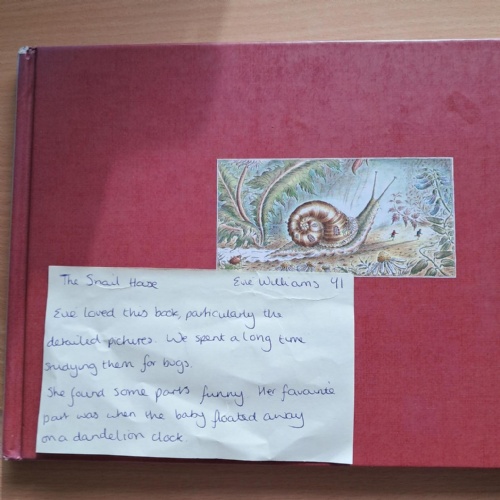 The Snail House Eve Williams Y1
Eve loved this book, particularly the
detailed pictures. We spent a long time
studying them for bugs.
She found some parts funny. Her favourite
part was when the baby floated away
on a dandelion clock.